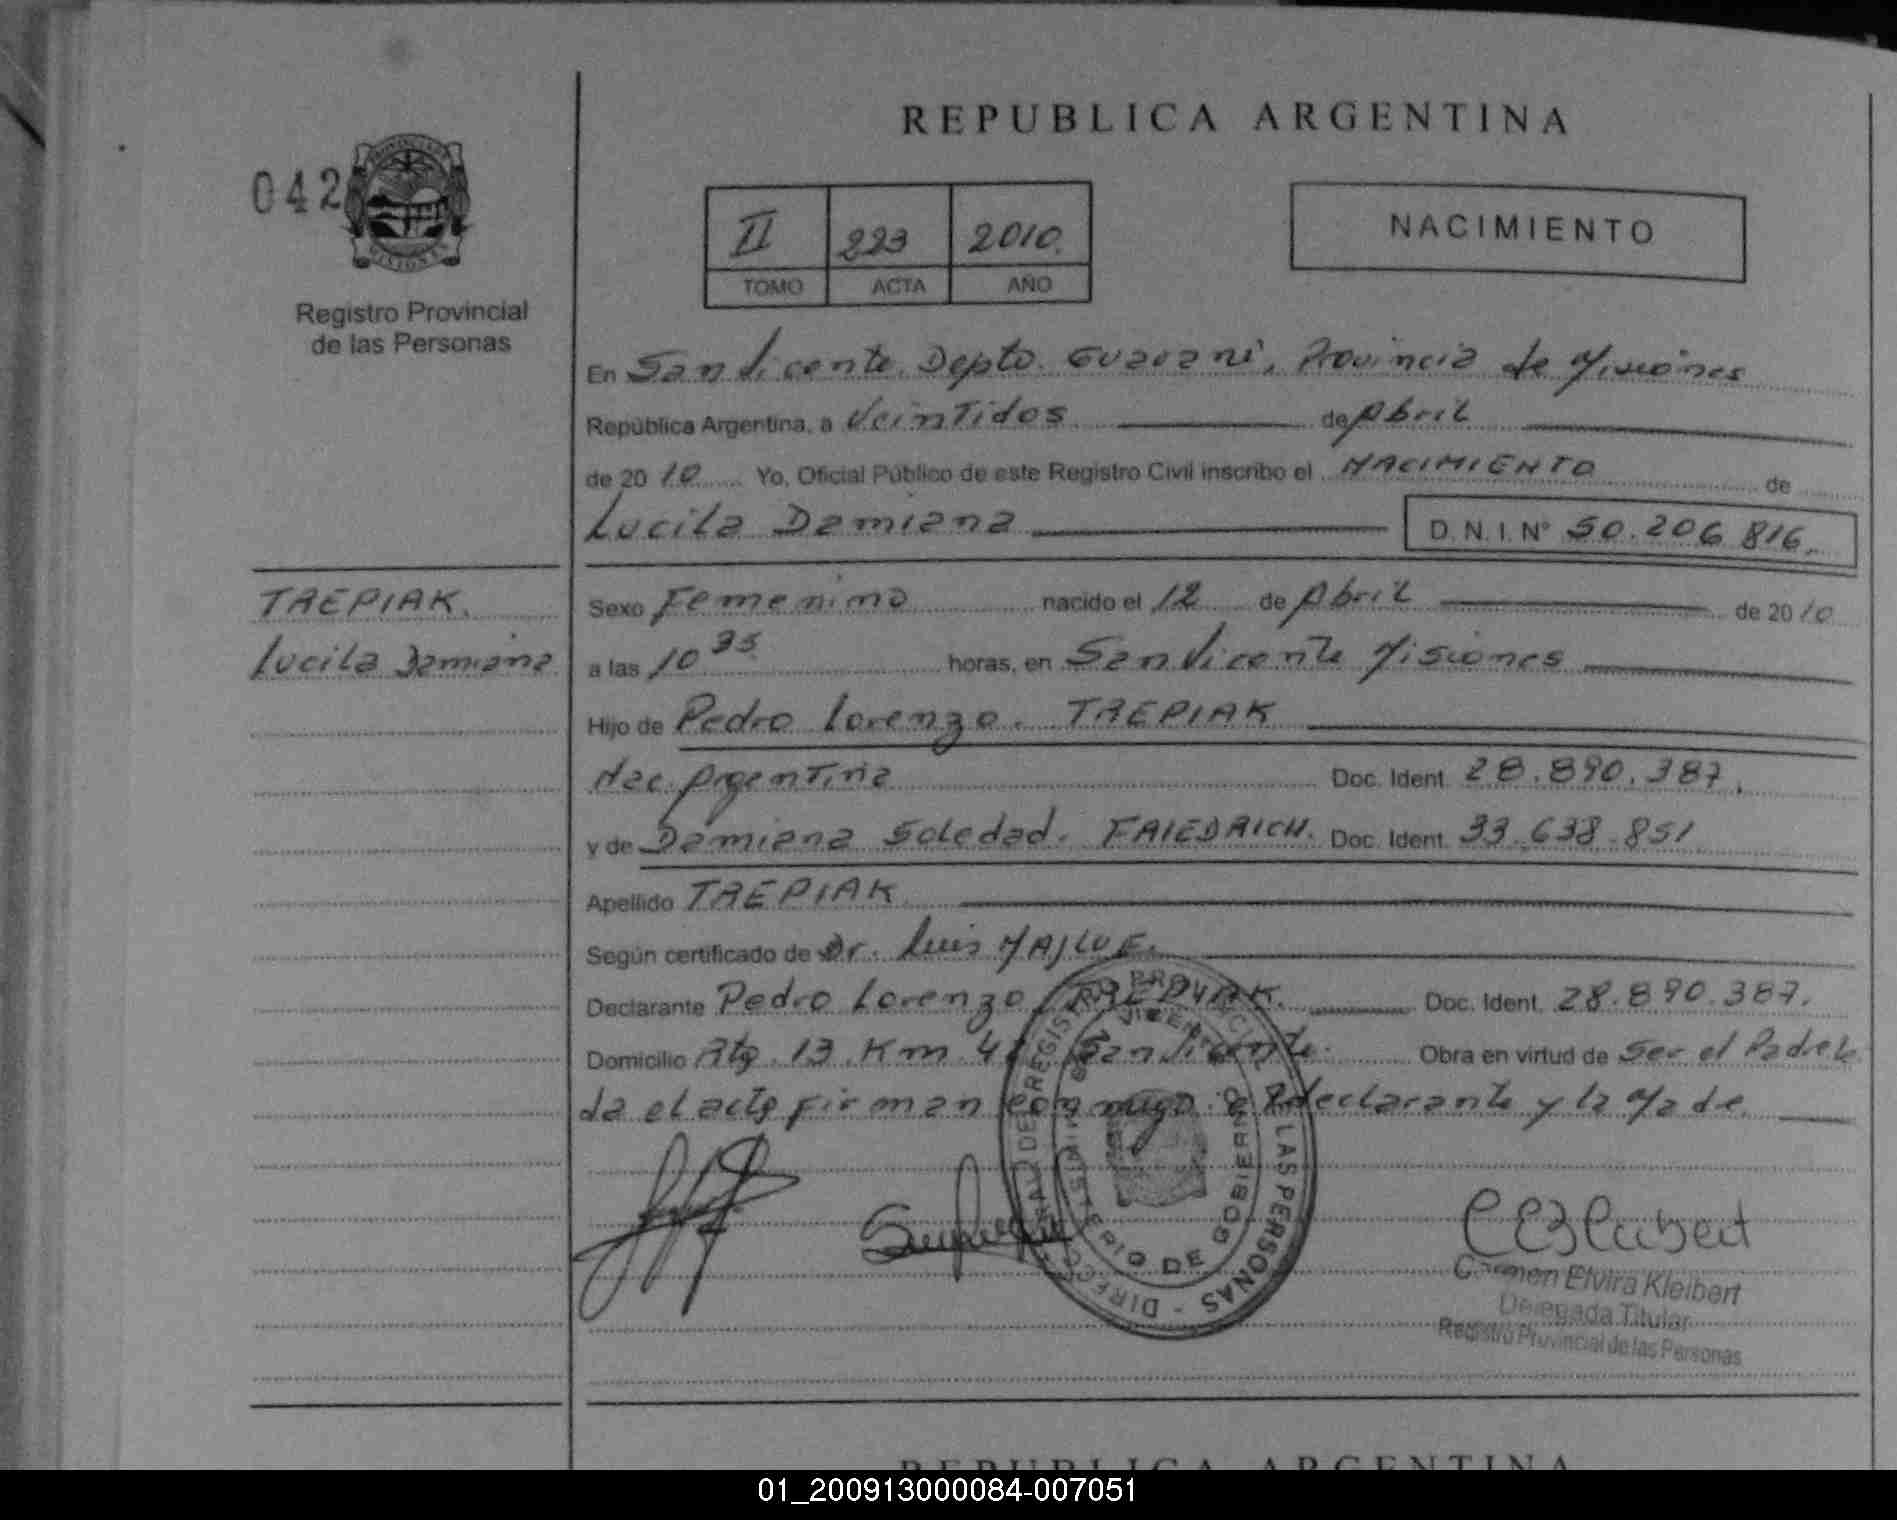 REPUBLICA ARGENTINA
042
II 223 2010
TOMO ACTA AÑO
NACIMIENTO
Registro Provincial
de las Personas
En San Vicente Depto. Guaraní, Provincia de Misiones
República Argentina, a Veintidos de Abril
de 2010 Yo, Oficial Público de este Registro Civil inscribo el NACIMIENTO de
Lucila Damiana D.N.I. Nº 50.206 816.
TREPIAK.
Lucila Damiana
Sexo Femenino nacido el 12 de Abril de 2010
a las 10 35 horas, en San Vicente Misiones
Hijo de Pedro Lorenzo. TREPIAK
Nac. Argentina Doc. Ident. 28.890.387.
y de Damiana Soledad. FRIEDRICH. Doc. Ident. 33.638.851
Apellido TREPIAK
Según certificado de Dr. Luis
Declarante Pedro Lorenzo TREPIAK. Doc. Ident. 28.890.387.
Domicilio Rta. 13. Km 4 San Vicente. Obra en virtud de Ser el Padre Le
da el acta firman conmigo el declarante y la Madre
DIRECC. GRAL. DE REGISTRO PROVINCIAL DE LAS PERSONAS
SAN VICENTE
MINISTERIO DE GOBIERNO
Carmen Elvira Kleibert
Delegada Titular
Registro Provincial de las Personas
REPUBLICA ARGENTINA
01_200913000084-007051